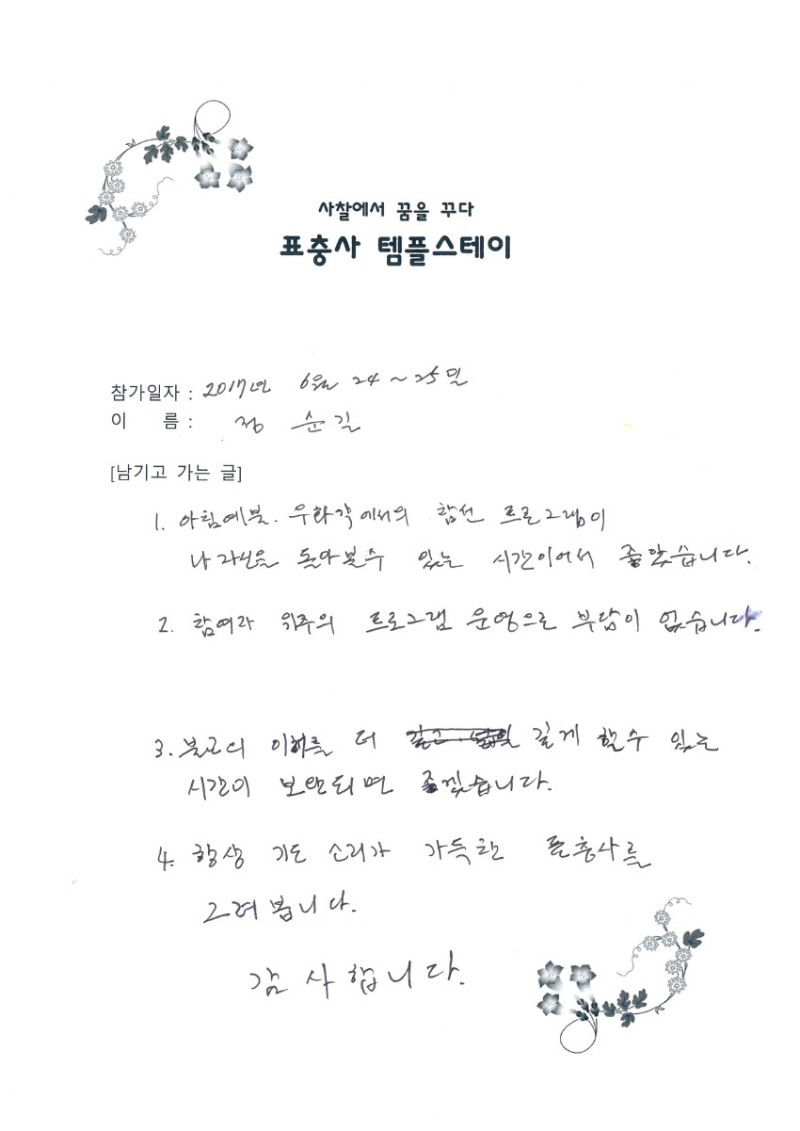 사찰에서 꿈을 꾸다
표충사 템플스테이
참가일자 : 2017년 6월 24 ~ 25일
이 름 : 정 순길
[남기고 가는 글]
1. 아침예불. 우화각에서의 참선 프로그램이
나 자신을 돌아볼수 있는 시간이어서 좋았습니다.
2. 참여자 위주의 프로그램 운영으로 부담이 없습니다.
3. 불교의 이해를 더 깊게 할수 있는
시간이 보완되면 좋겠습니다.
4. 항상 기도 소리가 가득한 표충사를
그려 봅니다.
감사합니다.